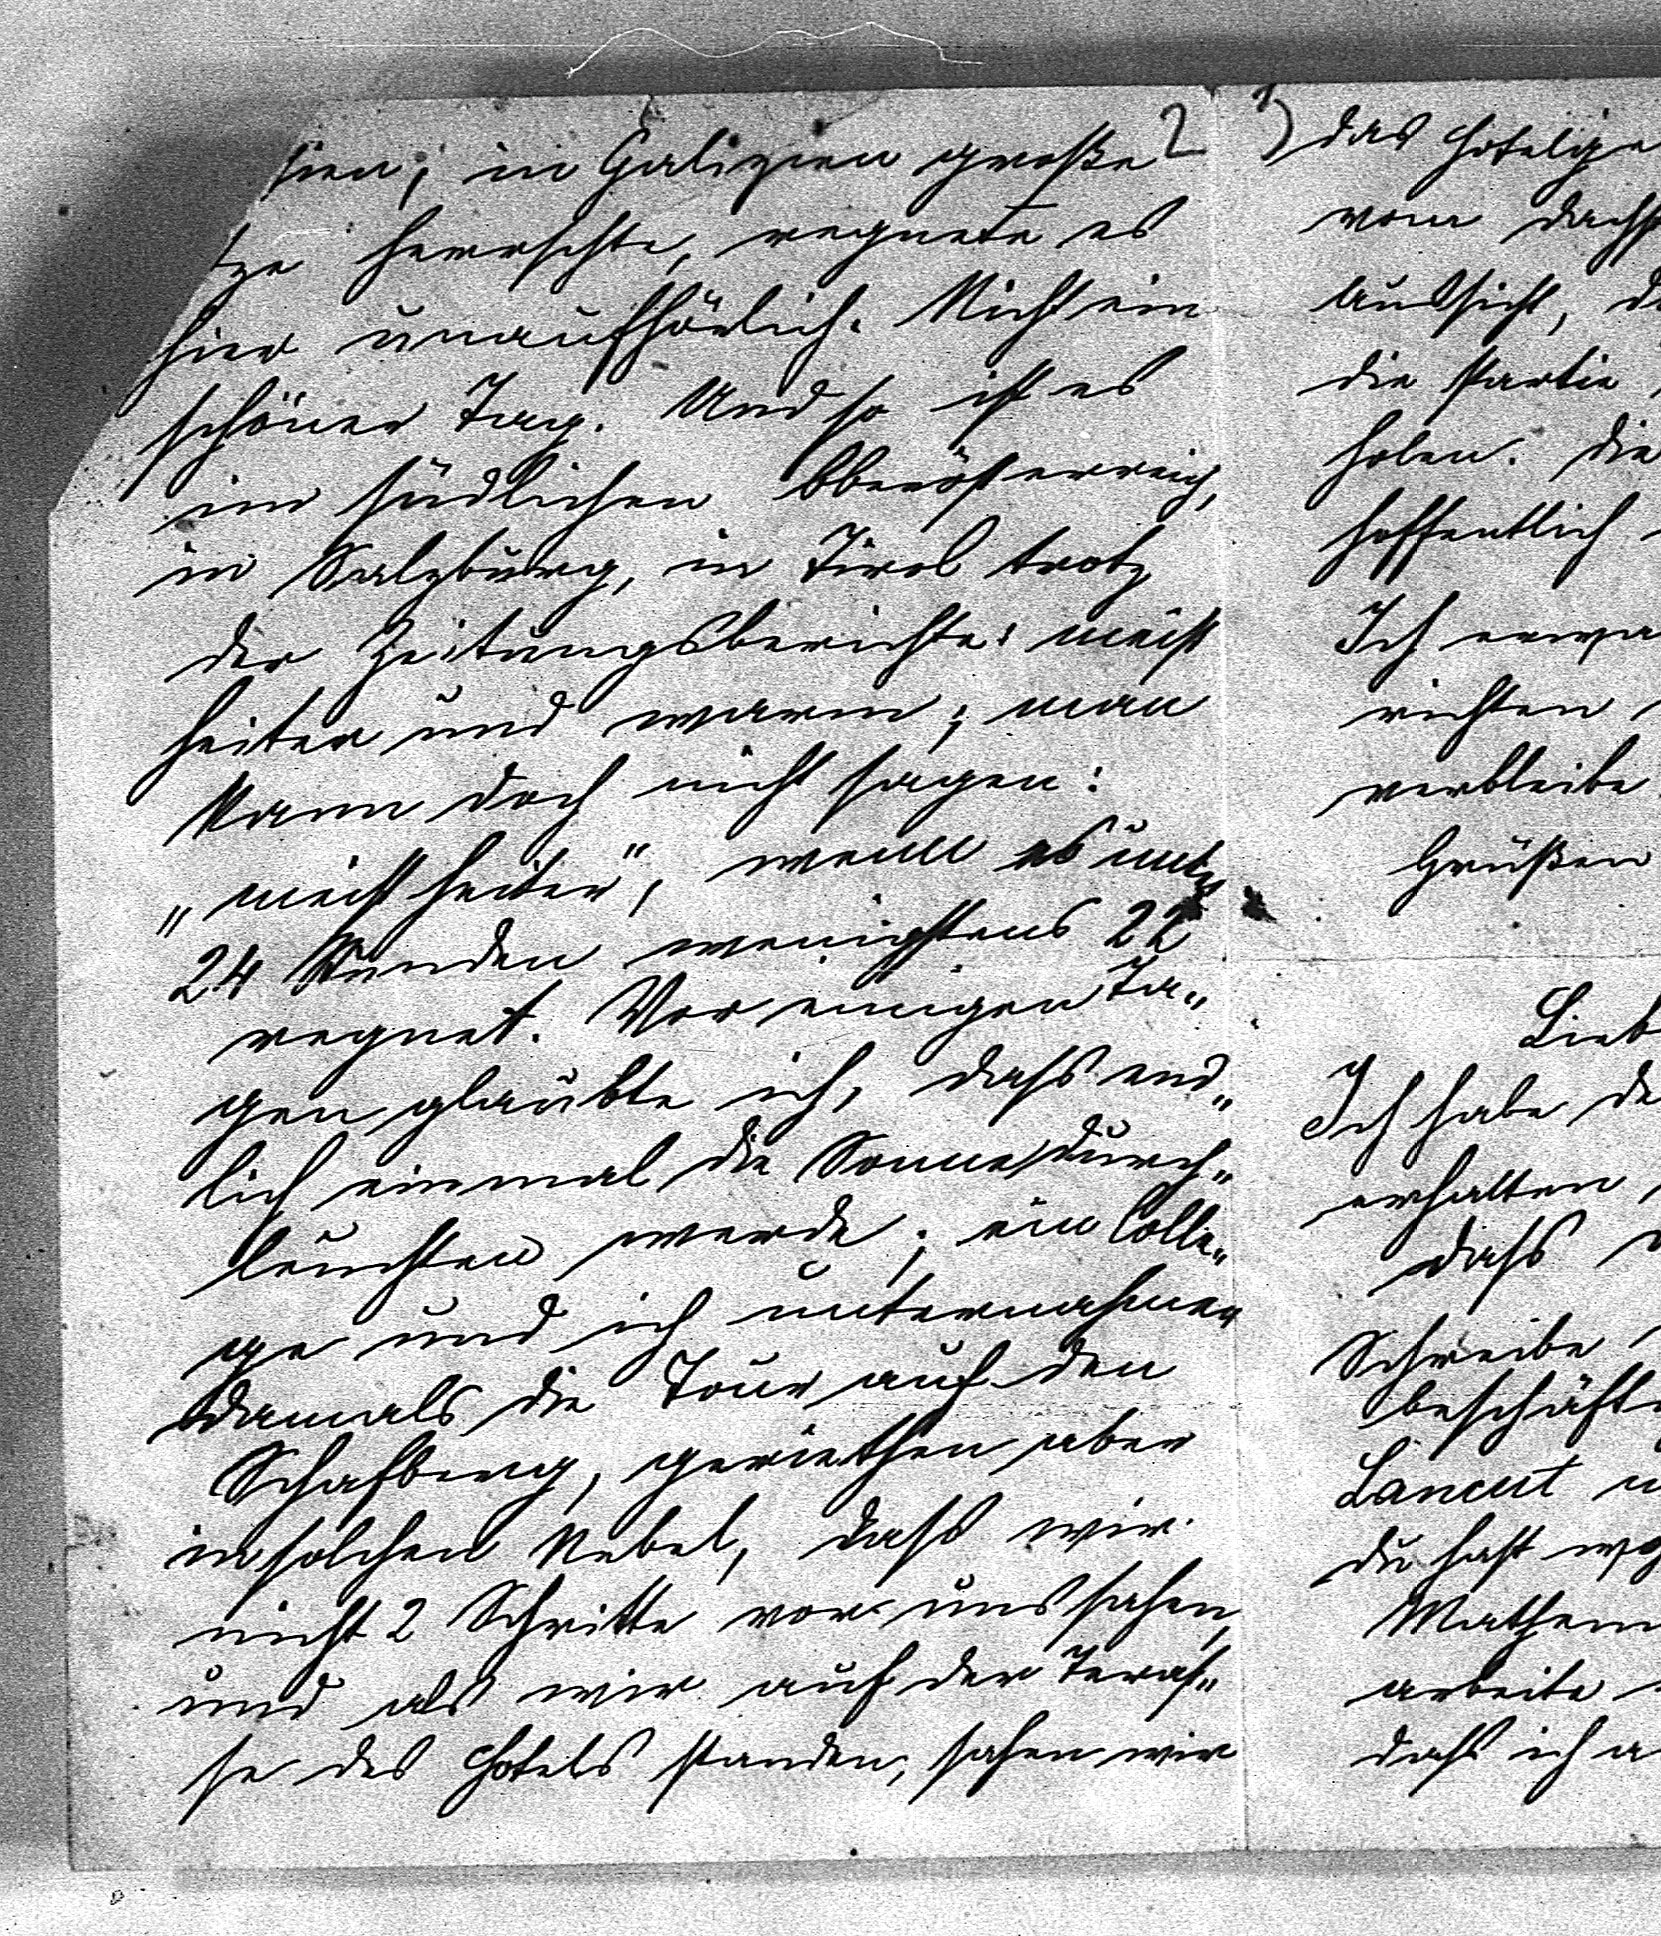 sien; in Galizien große 2
tze herrschte, regnete es
hier unaufhörlich. Nicht ein
schöner Tag. Und so ist es
im südlichen Oberösterreich,
in Salzburg, in Tirol trotz
der Zeitungsberichte: meist
heiter und warm; man
kann doch nicht sagen:
„meist heiter", wenn es unter
24 Stunden wenigstens 22
regnet. Vor einigen Ta„
gen glaubte ich, dass end„
lich einmal die Sonne durch„
leuchten werde; ein Colle„
ge und ich unternahmen
damals die Tour auf den
Schafberg, geriethen aber
in solchen Nebel, dass wir
nicht 2 Schritte vor uns sahen,
und als wir auf der Teras„
se des Hotels standen, sahen wir
3) das Hotelge
vom Dachst
Aussicht, d
die Partie
holen. Die
hoffentlich
Ich erwa
richten
verbleibe
Grüßen
Lieb
Ich habe de
erhalten
dass
Schreibe
beschäft
Lancut u
du hast wo
Mathem
arbeite
dass ich a